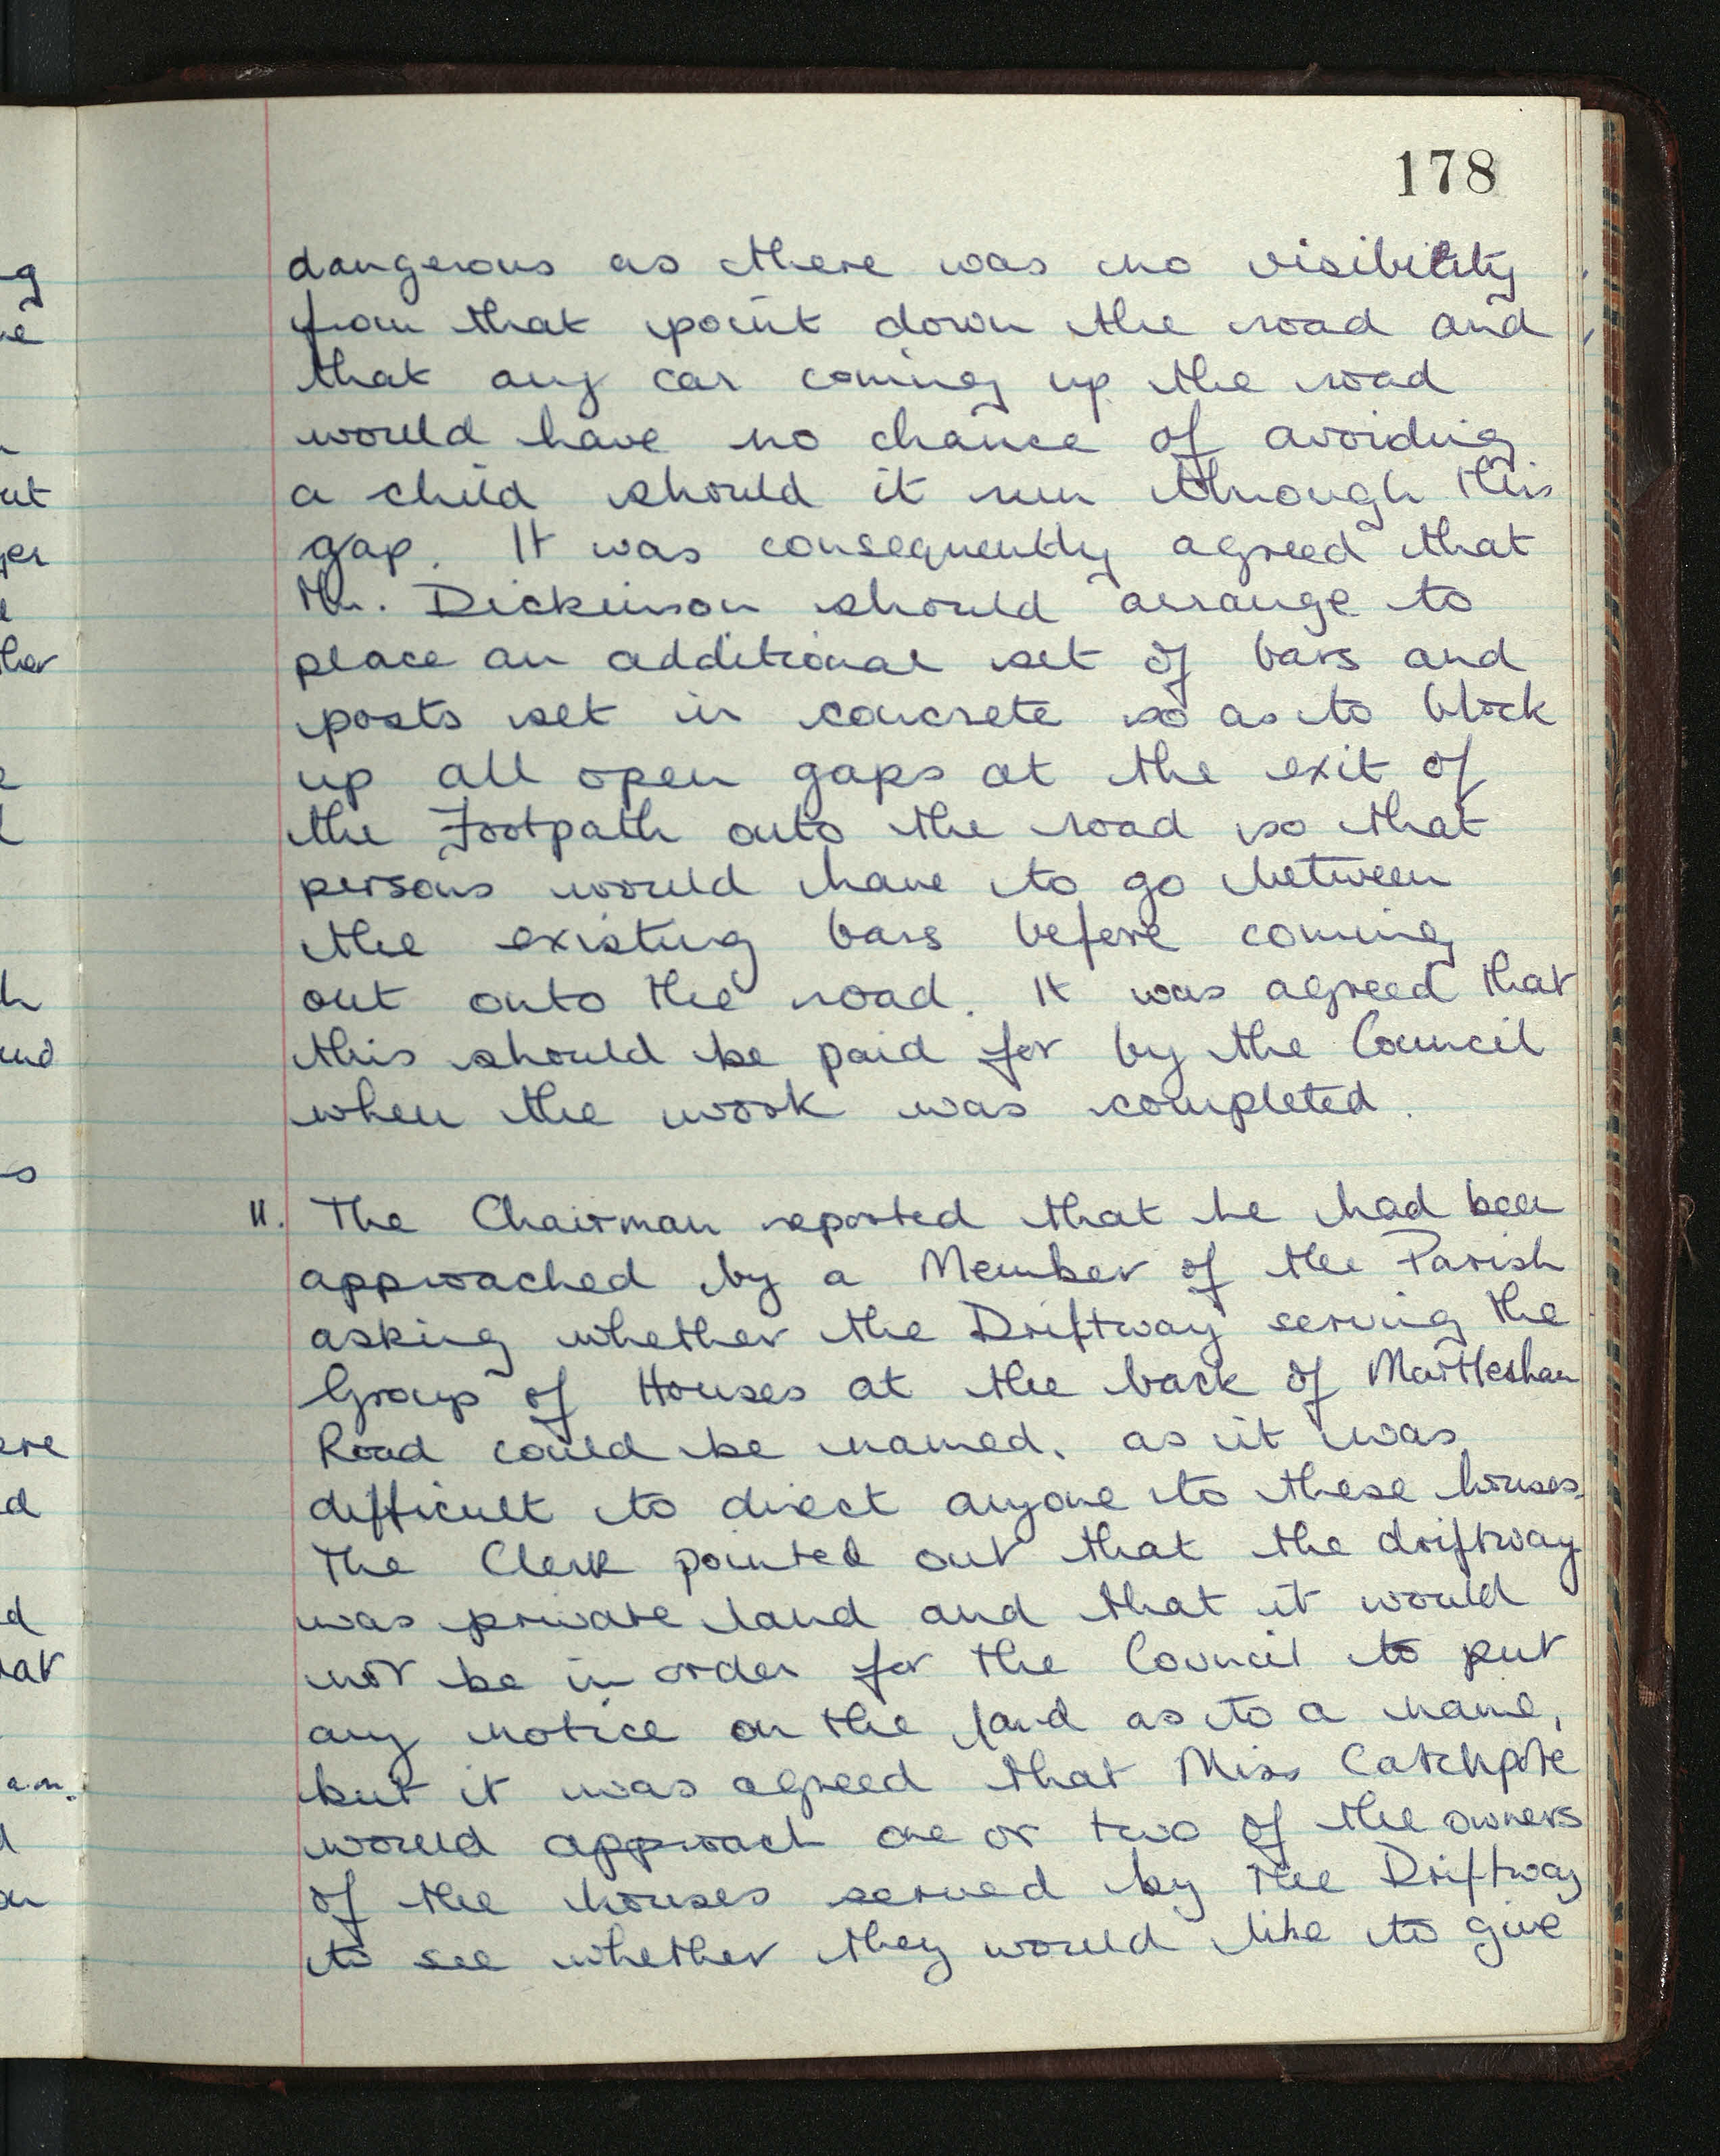 178
dangerous as there was no visibility
from that point down the road and
that any car coming up the road
would have no chance of avoiding
a child should it run through this
gap. It was consequently agreed that
Mr. Dickinson should arrange to
place an additional set of bars and
posts set in concrete so as to block
up all open gaps at the exit of
the Footpath onto the road so that
persons would have to go between
the existing bars before coming
out onto the road. It was agreed that
this should be paid for by the Council
when the work was completed.
11. The Chairman reported that he had been
approached by a Member of the Parish
asking whether the Driftway serving the
Group of Houses at the back of Martlesham
Road could be named, as it was
difficult to direct anyone to these houses.
The Clerk pointed out that the driftway
was private land and that it would
not be in order for the Council to put
any notice on the land as to a name,
but it was agreed that Miss Catchpole
would approach one or two of the owners
of the houses served by the Driftway
to see whether they would like to give